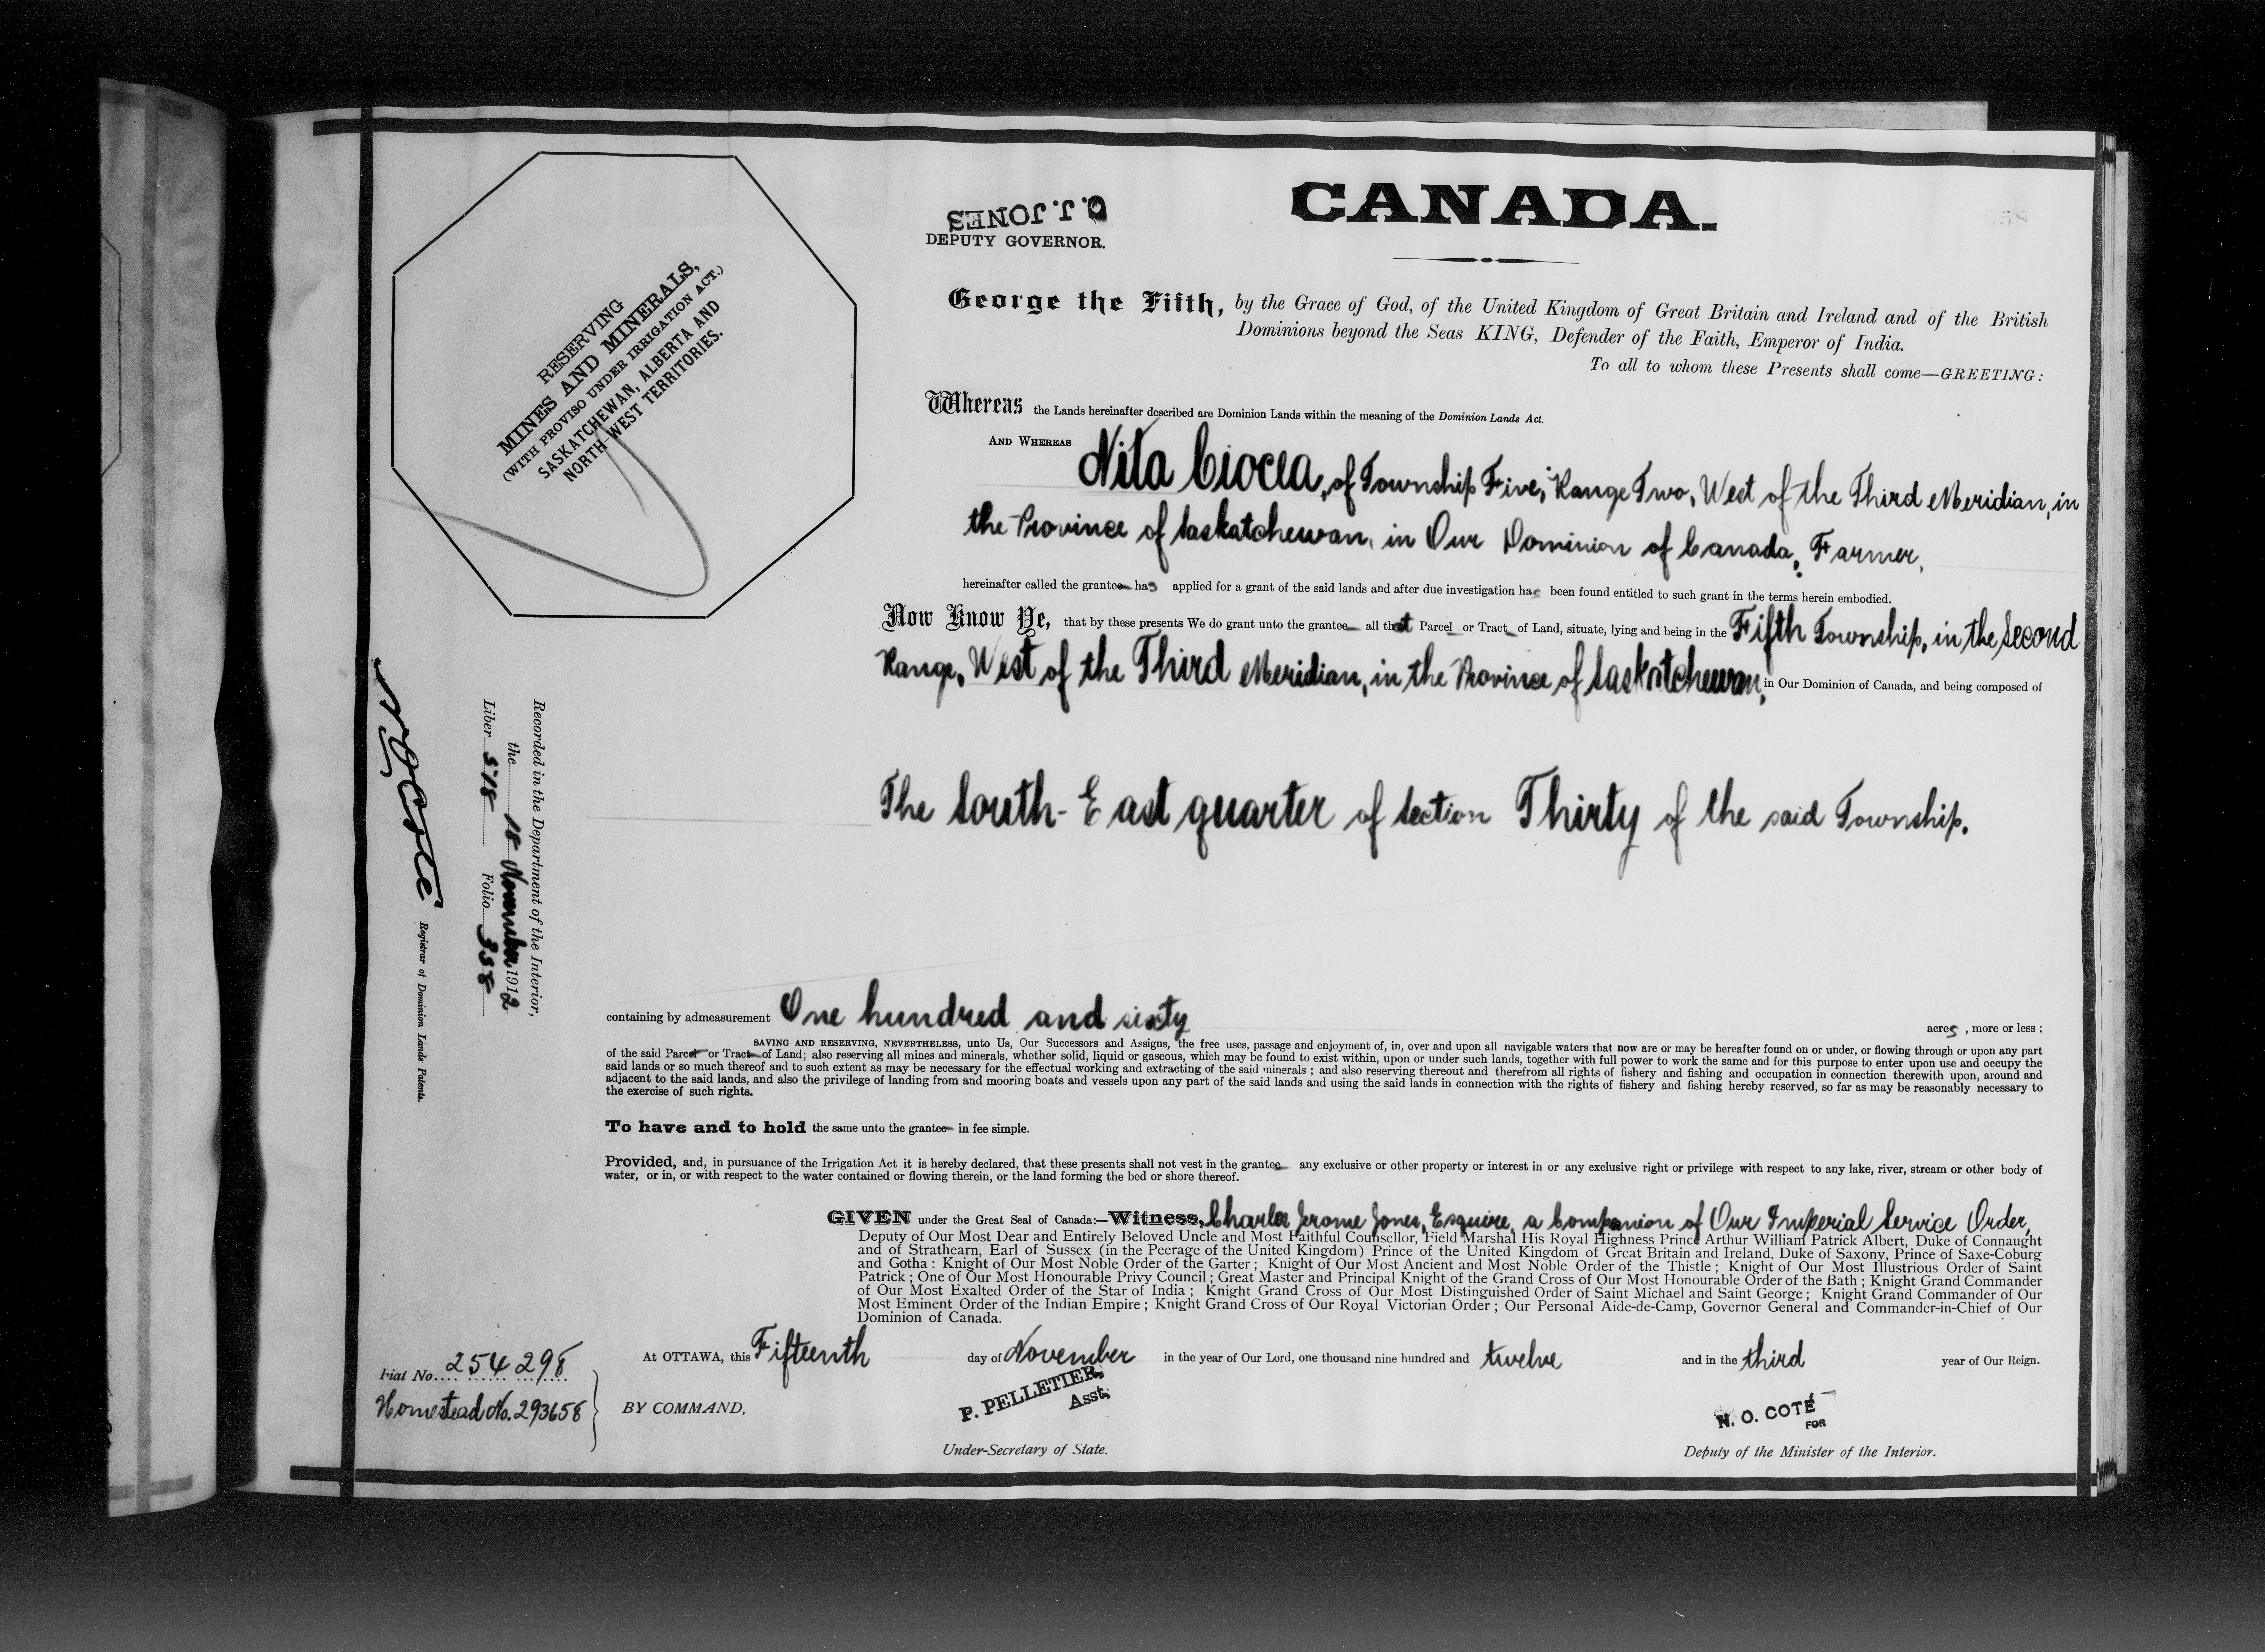 CANADA.
C. J. JONES
DEPUTY GOVERNOR.
558
RESERVING
MINES AND MINERALS,
(WITH PROVISO UNDER IRRIGATION ACT.)
SASKATCHEWAN, ALBERTA AND
NORTH-WEST TERRITORIES.
George the Fifth, by the Grace of God, of the United Kingdom of Great Britain and Ireland and of the British
Dominions beyond the Seas KING, Defender of the Faith, Emperor of India.
To all to whom these Presents shall come—GREETING:
Whereas the Lands hereinafter described are Dominion Lands within the meaning of the Dominion Lands Act.
AND WHEREAS Nita Ciocea, of Township Five, Range Two, West of the Third Meridian, in
the Province of Saskatchewan, in Our Dominion of Canada, Farmer,
hereinafter called the grantee has applied for a grant of the said lands and after due investigation has been found entitled to such grant in the terms herein embodied.
Now Know Ye, that by these presents We do grant unto the grantee all that Parcel or Tract of Land, situate, lying and being in the Fifth Township, in the Second
Range, West of the Third Meridian, in the Province of Saskatchewan, in Our Dominion of Canada, and being composed of
The South-East quarter of Section Thirty of the said Township.
containing by admeasurement One hundred and sixty acres, more or less;
SAVING AND RESERVING, NEVERTHELESS, unto Us, Our Successors and Assigns, the free uses, passage and enjoyment of, in, over and upon all navigable waters that now are or may be hereafter found on or under, or flowing through or upon any part
of the said Parcel or Tract of Land; also reserving all mines and minerals, whether solid, liquid or gaseous, which may be found to exist within, upon or under such lands, together with full power to work the same and for this purpose to enter upon use and occupy the
said lands or so much thereof and to such extent as may be necessary for the effectual working and extracting of the said minerals; and also reserving thereout and therefrom all rights of fishery and fishing and occupation in connection therewith upon, around and
adjacent to the said lands, and also the privilege of landing from and mooring boats and vessels upon any part of the said lands and using the said lands in connection with the rights of fishery and fishing hereby reserved, so far as may be reasonably necessary to
the exercise of such rights.
To have and to hold the same unto the grantee in fee simple.
Provided, and, in pursuance of the Irrigation Act it is hereby declared, that these presents shall not vest in the grantee any exclusive or other property or interest in or any exclusive right or privilege with respect to any lake, river, stream or other body of
water, or in, or with respect to the water contained or flowing therein, or the land forming the bed or shore thereof.
GIVEN under the Great Seal of Canada:—Witness, Charles Jerome Jones, Esquire, a Companion of Our Imperial Service Order,
Deputy of Our Most Dear and Entirely Beloved Uncle and Most Faithful Counsellor, Field Marshal His Royal Highness Prince Arthur William Patrick Albert, Duke of Connaught
and of Strathearn, Earl of Sussex (in the Peerage of the United Kingdom) Prince of the United Kingdom of Great Britain and Ireland, Duke of Saxony, Prince of Saxe-Coburg
and Gotha: Knight of Our Most Noble Order of the Garter; Knight of Our Most Ancient and Most Noble Order of the Thistle; Knight of Our Most Illustrious Order of Saint
Patrick; One of Our Most Honourable Privy Council; Great Master and Principal Knight of the Grand Cross of Our Most Honourable Order of the Bath; Knight Grand Commander
of Our Most Exalted Order of the Star of India; Knight Grand Cross of Our Most Distinguished Order of Saint Michael and Saint George; Knight Grand Commander of Our
Most Eminent Order of the Indian Empire; Knight Grand Cross of Our Royal Victorian Order; Our Personal Aide-de-Camp, Governor General and Commander-in-Chief of Our
Dominion of Canada.
At OTTAWA, this Fifteenth day of November in the year of Our Lord, one thousand nine hundred and twelve and in the third year of Our Reign.
BY COMMAND,
P. PELLETIER,
Asst.
Under-Secretary of State.
N. O. COTÉ
FOR
Deputy of the Minister of the Interior.
Fiat No. 254298
Homestead No. 293658
Recorded in the Department of the Interior,
the 18 November 1912
Liber 518 Folio 358
N O Coté
Registrar of Dominion Lands Patents.